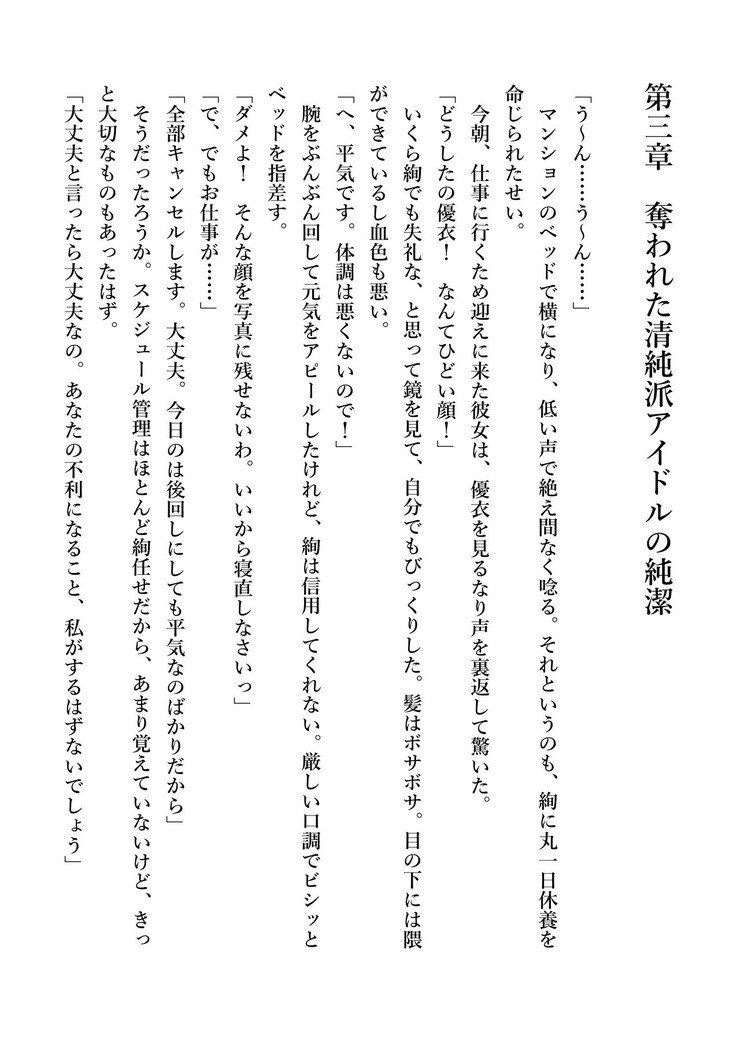 第三章　奪われた清純派アイドルの純潔
「う～ん……う～ん……」
マンションのベッドで横になり、低い声で絶え間なく唸る。それというのも、絢に丸一日休養を
命じられたせい。
今朝、仕事に行くため迎えに来た彼女は、優衣を見るなり声を裏返して驚いた。
「どうしたの優衣！　なんてひどい顔！」
いくら絢でも失礼な、と思って鏡を見て、自分でもびっくりした。髪はボサボサ。目の下には隈
ができているし血色も悪い。
「へ、平気です。体調は悪くないので！」
腕をぶんぶん回して元気をアピールしたけれど、絢は信用してくれない。厳しい口調でビシッと
ベッドを指差す。
「ダメよ！　そんな顔を写真に残せないわ。いいから寝直しなさいっ」
「で、でもお仕事が……」
「全部キャンセルします。大丈夫。今日のは後回しにしても平気なのばかりだから」
そうだったろうか。スケジュール管理はほとんど絢任せだから、あまり覚えていないけど、きっ
と大切なものもあったはず。
「大丈夫と言ったら大丈夫なの。あなたの不利になること、私がするはずないでしょう」